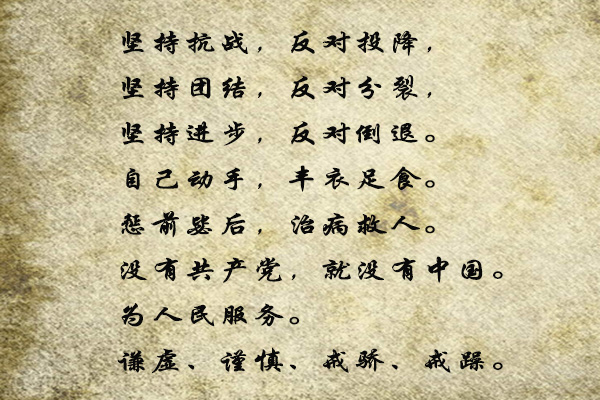 坚持抗战，反对投降，
坚持团结，反对分裂，
坚持进步，反对倒退。
自己动手，丰衣足食。
惩前毖后，治病救人。
没有共产党，就没有中国。
为人民服务。
谦虚、谨慎、戒骄、戒躁。